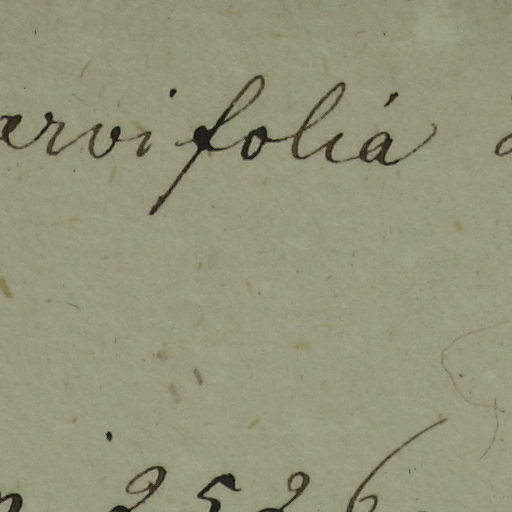 arvifolia
2526